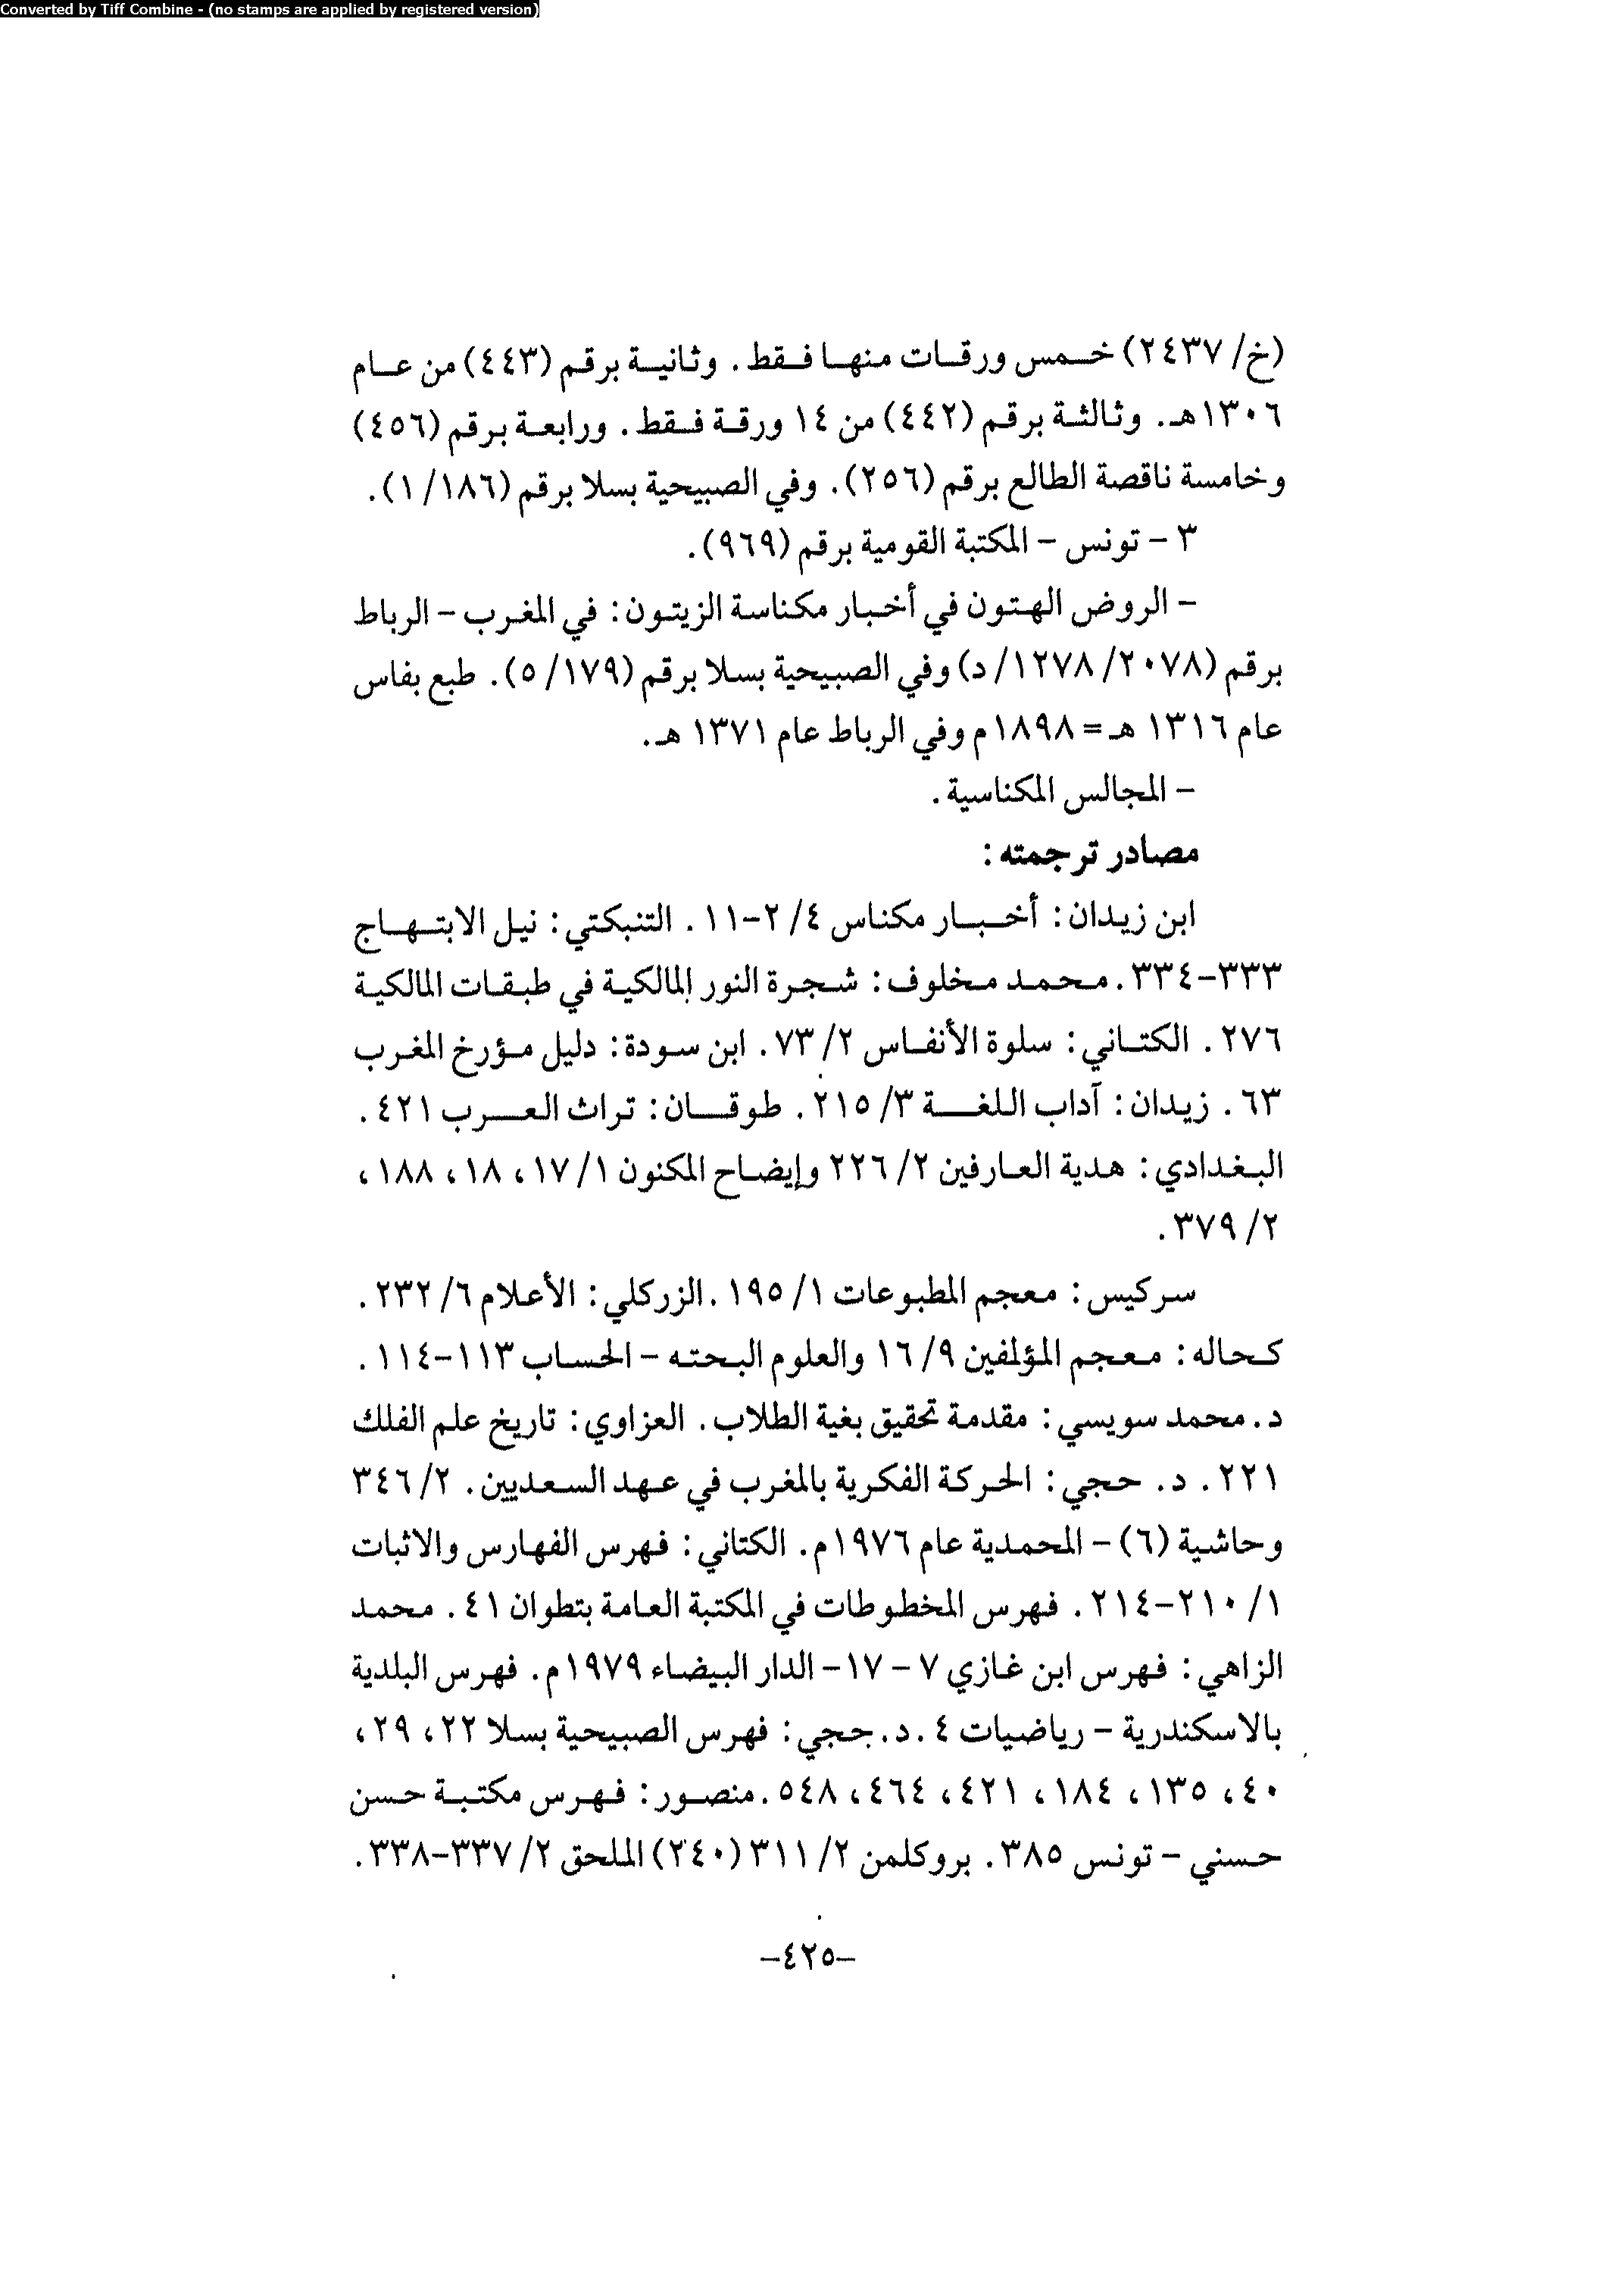 Converted by Tiff Combine - (no stamps are applied by registered version)
(خ/ ٢٤٣٧) خمس ورقات منها فقط. وثانية برقم (٤٤٣) من عام
١٣٠٦هـ. وثالثة برقم (٤٤٢) من ١٤ ورقة فقط. ورابعة برقم (٤٥٦)
وخامسة ناقصة الطالع برقم (٢٥٦). وفي الصبيحية بسلا برقم (١/١٨٦).
٣ - تونس - المكتبة القومية برقم (٩٦٩).
- الروض الهتون في أخبار مكناسة الزيتون: في المغرب - الرباط
برقم (٢٠٧٨/ ١٢٧٨/ د) وفي الصبيحية بسلا برقم (١٧٩/ ٥). طبع بفاس
عام ١٣١٦ هـ = ١٨٩٨م وفي الرباط عام ١٣٧١ هـ.
- المجالس المكناسية.
مصادر ترجمته:
ابن زيدان: أخبار مكناس ٤/ ٢-١١. التنبكتي: نيل الابتهاج
٣٣٣-٣٣٤. محمد مخلوف: شجرة النور المالكية في طبقات المالكية
٢٧٦. الكتاني: سلوة الأنفاس ٢/ ٧٣. ابن سودة: دليل مؤرخ المغرب
٦٣. زيدان: آداب اللغة ٣/ ٢١٥. طوقان: تراث العرب ٤٢١.
البغدادي: هدية العارفين ٢/ ٢٢٦ وإيضاح المكنون ١/ ١٧، ١٨، ١٨٨،
٢/ ٣٧٩.
سركيس: معجم المطبوعات ١/ ١٩٥. الزركلي: الأعلام ٦/ ٢٣٢.
كحاله: معجم المؤلفين ٩/ ١٦ والعلوم البحته - الحساب ١١٣-١١٤.
د. محمد سويسي: مقدمة تحقيق بغية الطلاب. العزاوي: تاريخ علم الفلك
٢٢١. د. حجي: الحركة الفكرية بالمغرب في عهد السعديين. ٢/ ٣٤٦
وحاشية (٦) - المحمدية عام ١٩٧٦م. الكتاني: فهرس الفهارس والاثبات
١/ ٢١٠-٢١٤. فهرس المخطوطات في المكتبة العامة بتطوان ٤١. محمد
الزاهي: فهرس ابن غازي ٧ - ١٧- الدار البيضاء ١٩٧٩م. فهرس البلدية
بالاسكندرية - رياضيات ٤. د. حجي: فهرس الصبيحية بسلا ٢٢، ٢٩،
٤٠، ١٣٥، ١٨٤، ٤٢١، ٤٦٤، ٥٤٨. منصور: فهرس مكتبة حسن
حسني - تونس ٣٨٥. بروكلمن ٢/ ٣١١ (٢٤٠) الملحق ٢/ ٣٣٧-٣٣٨.
-٤٢٥-